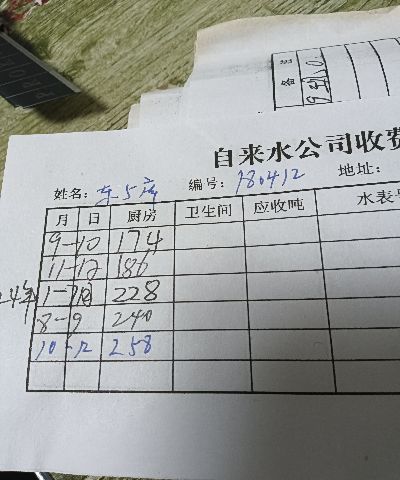 自来水公司收费
姓名: 东5 编号: 180412 地址:
月 日 厨房 卫生间 应收吨 水表号
9-10 174
11-12 186
24年 228
8-9 240
10-12 258